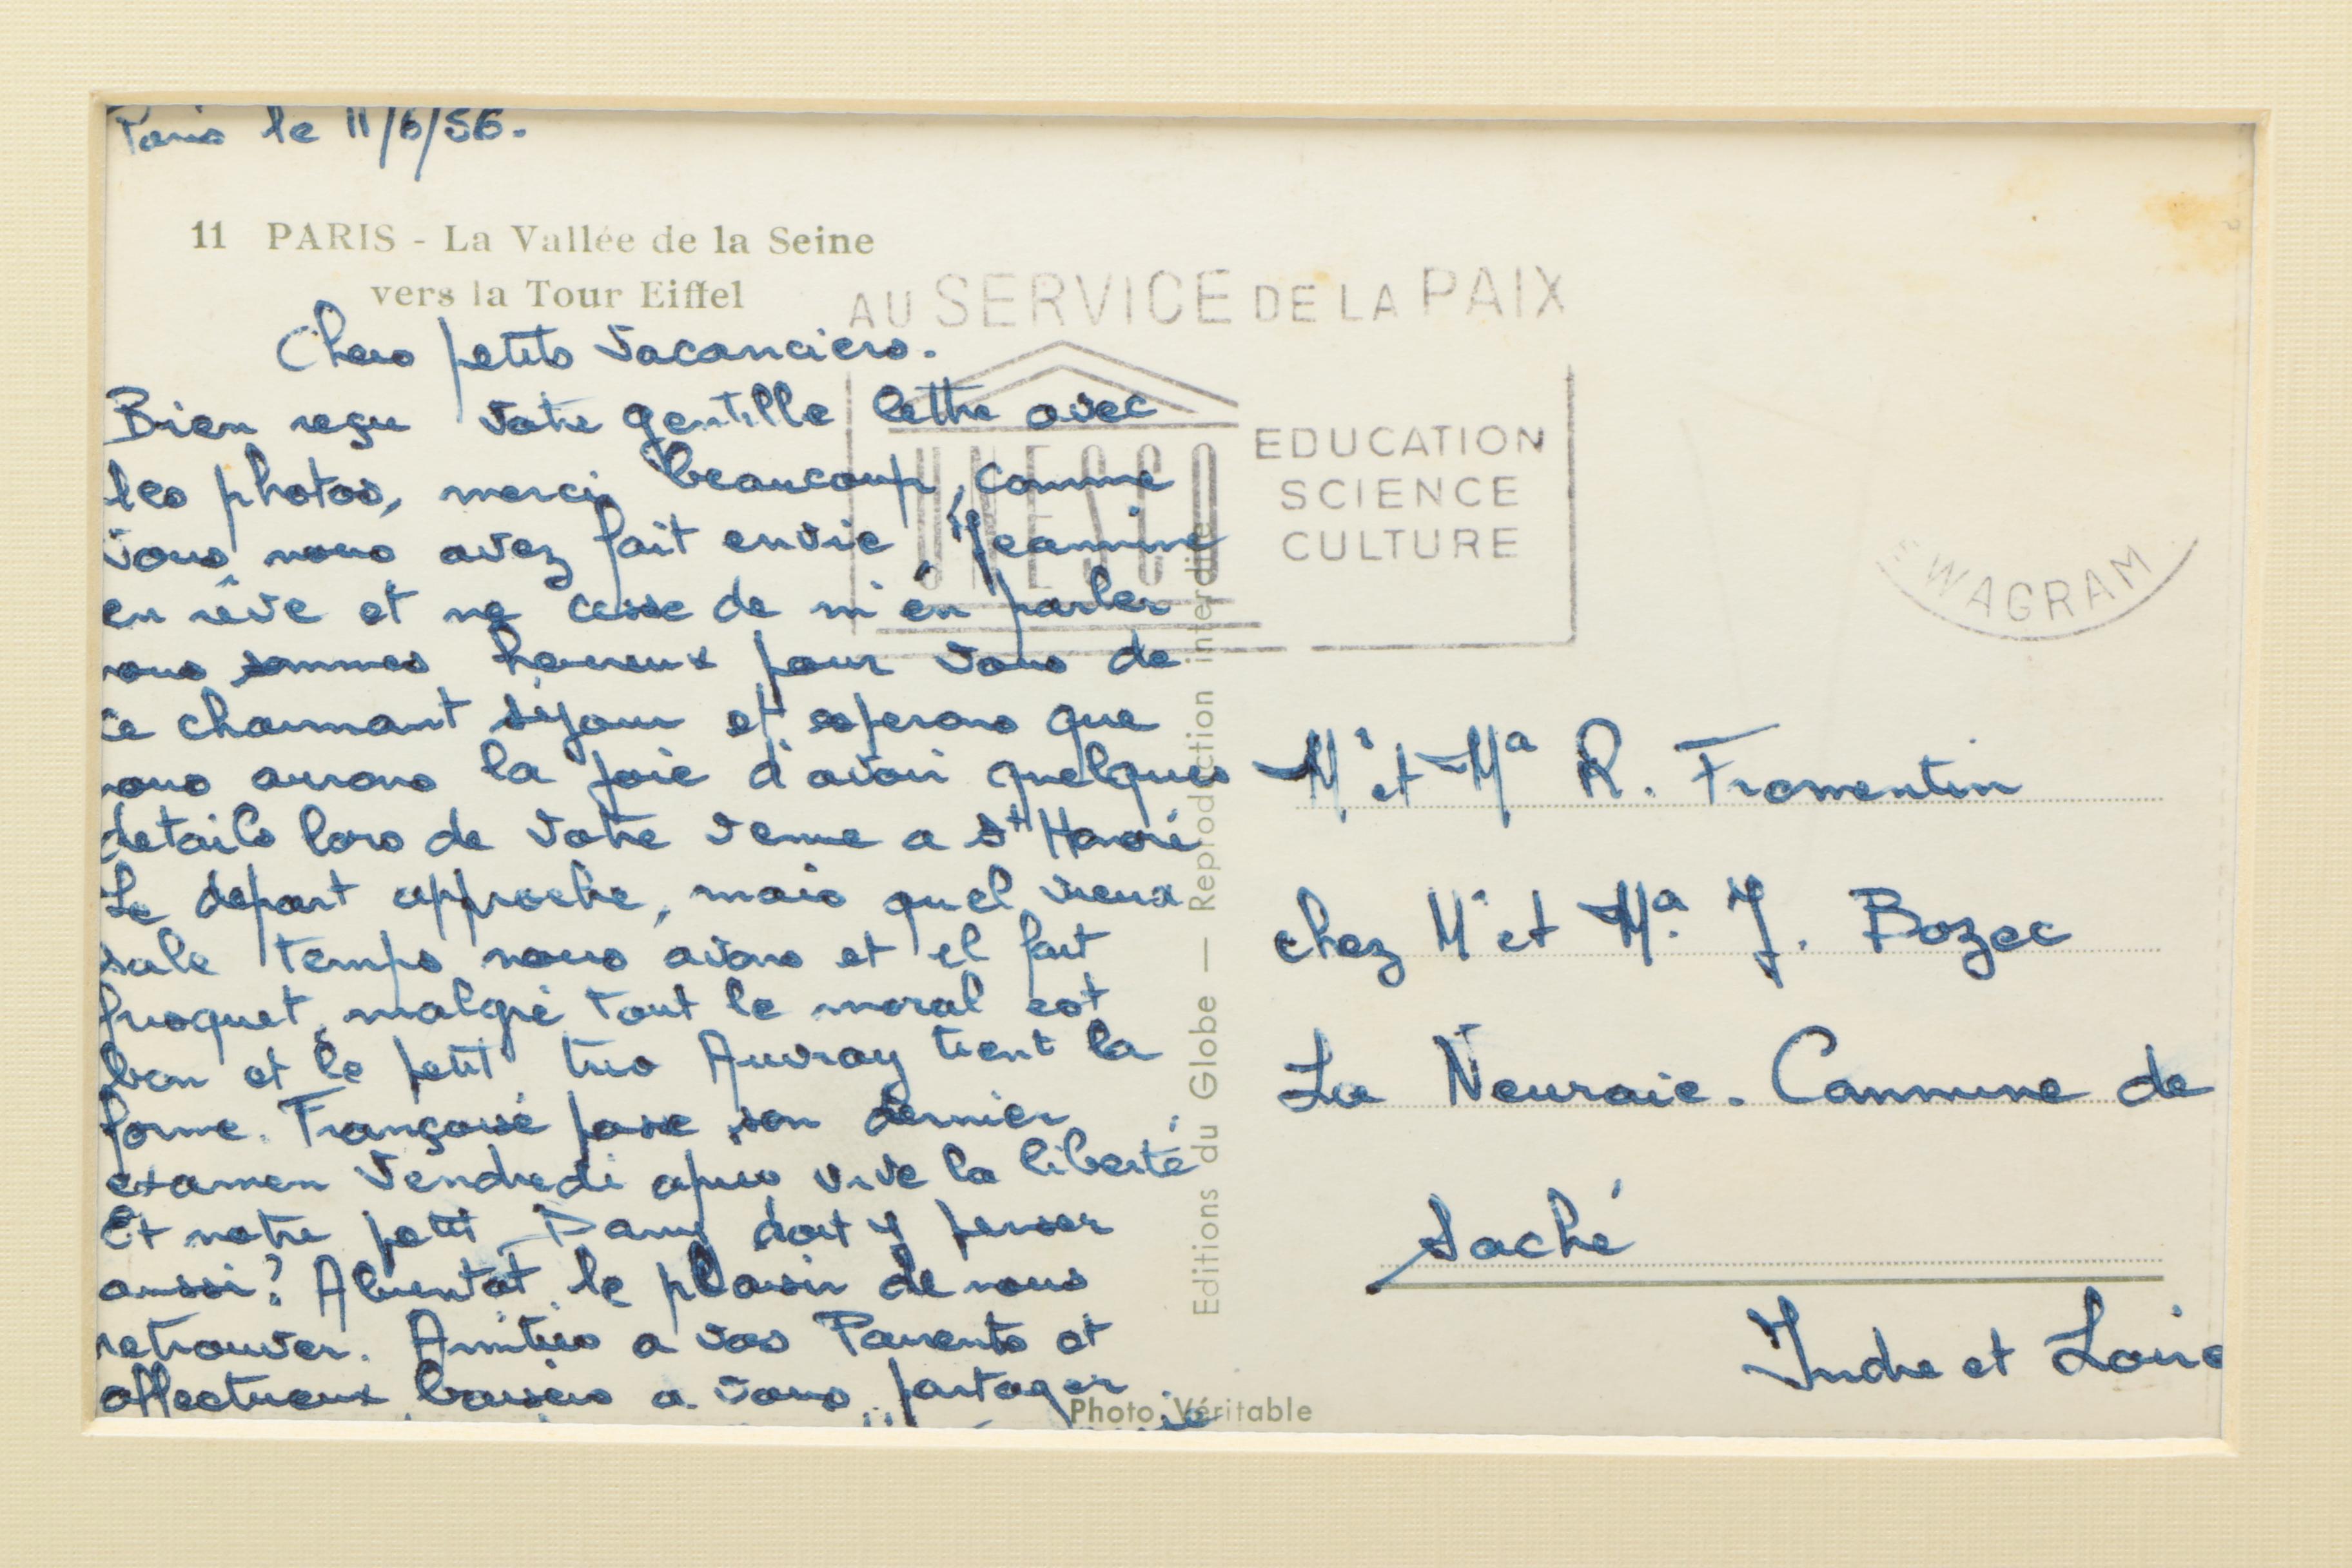 Paris le 11/6/56.
11 PARIS - La Vallée de la Seine
vers la Tour Eiffel
Chers petits vacanciers.
Bien reçu votre gentille lettre avec
les photos, merci beaucoup, comme
vous nous avez fait envie, Jeannine
en rêve et ne cesse de m'en parler
nous sommes heureux pour vous de
ce charmant séjour et esperons que
nous aurons la joie d'avoir quelques
details lors de votre venue a St Honoré
Le depart approche, mais quel vieux
sale temps nous avons et il fait
frisquet, malgré tout le moral est
bon et le petit trio Auvray tient la
forme. Françoise passe son dernier
examen Vendredi apres vive la liberté
Et notre petit Dany doit y penser
aussi? Abientot le plaisir de nous
retrouver. Amities a vos Parents et
affectueux baisers a vous partager
AU SERVICE DE LA PAIX
UNESCO
EDUCATION
SCIENCE
CULTURE
WAGRAM
Editions du Globe — Reproduction interdite
Mr et Ma R. Fromentin
chez Mr et Ma J. Bozec
La Neuraie. Commune de
Saché
Indre et Loire
Photo Véritable